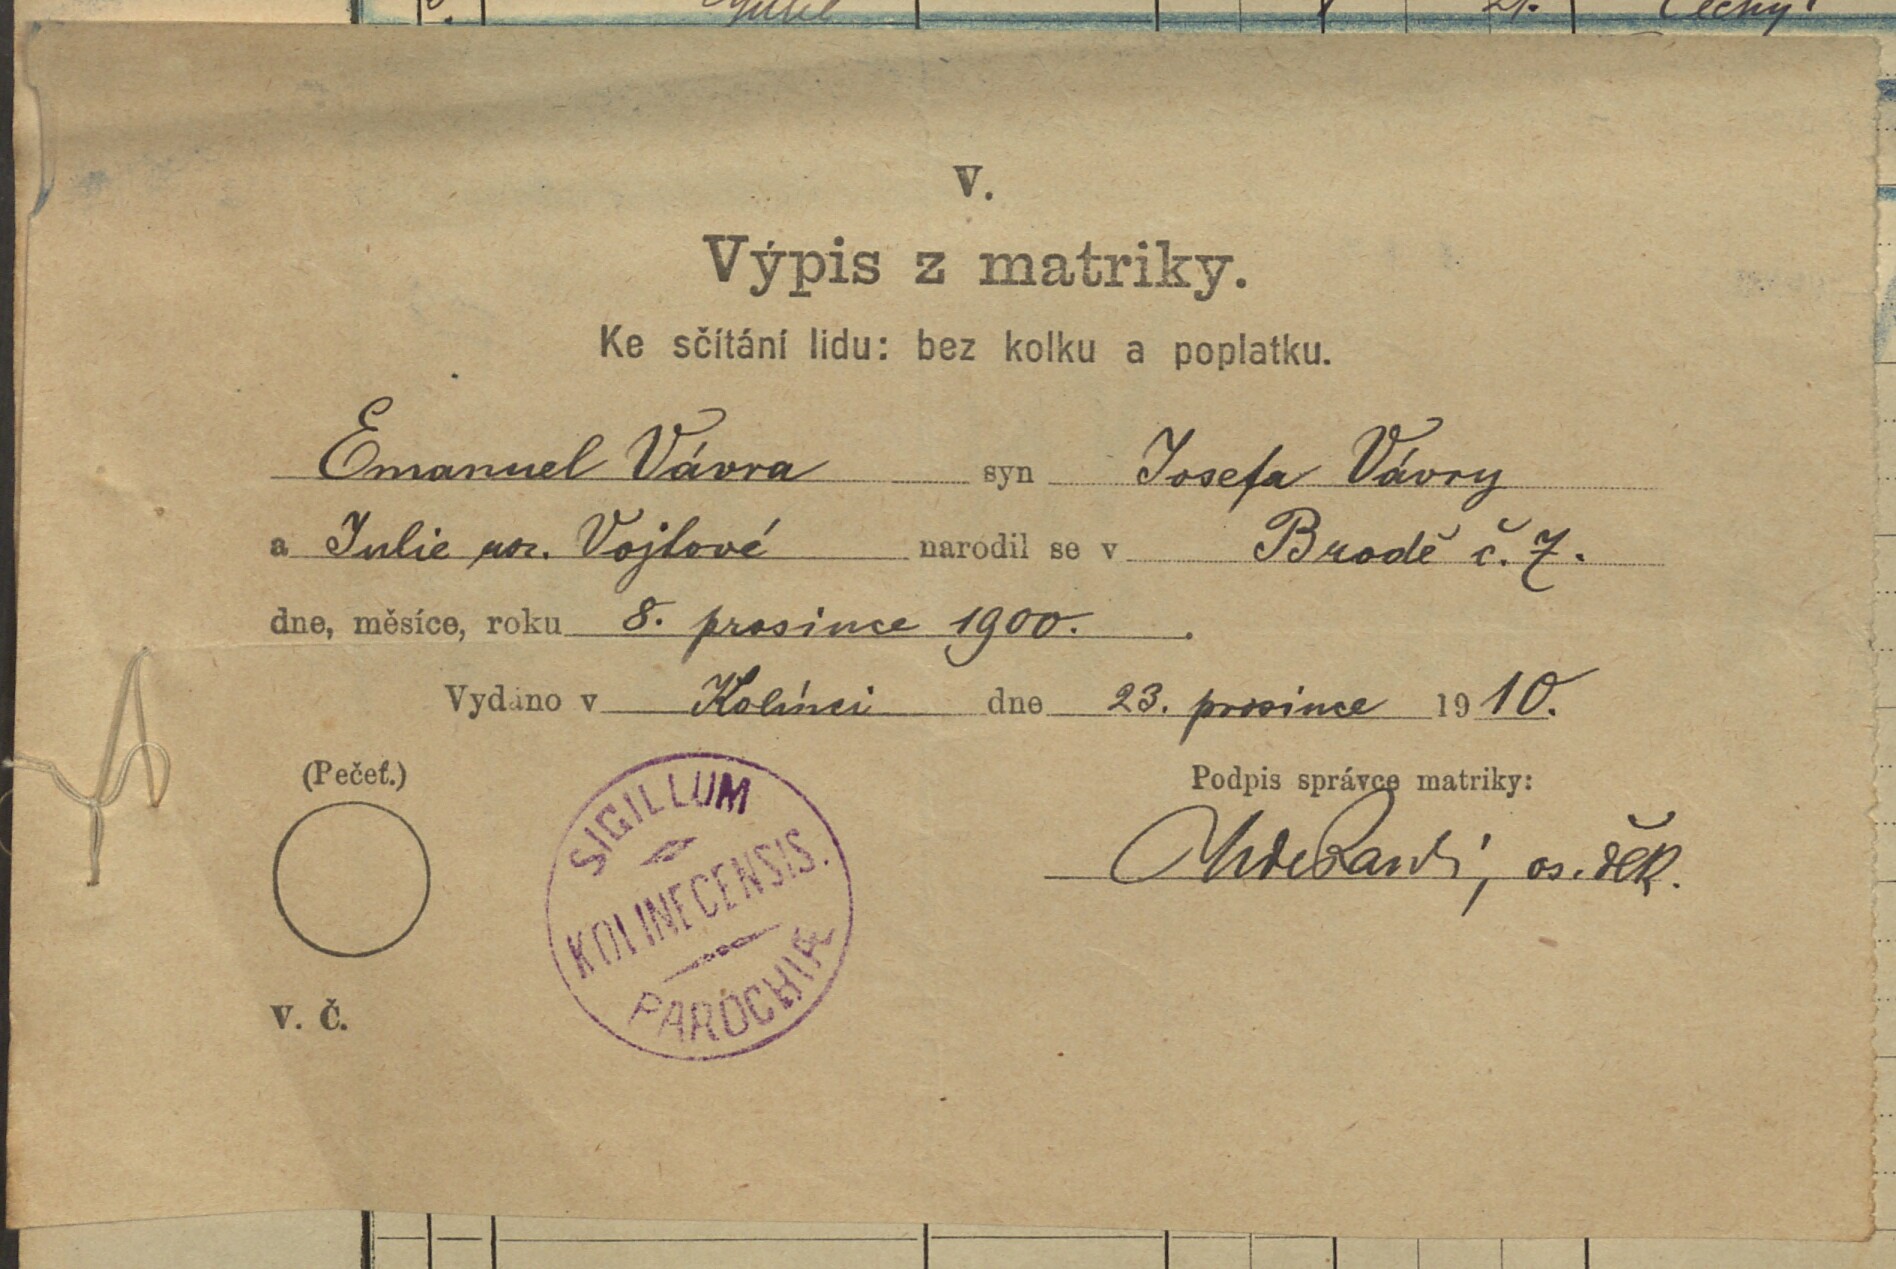 21. Čechy
V.
Výpis z matriky.
Ke sčítání lidu: bez kolku a poplatku.
Emanuel Vávra syn Josefa Vávry
a Julie roz. Vojtové narodil se v Brodě č. 7.
dne, měsíce, roku 8. prosince 1900.
Vydáno v Kolinci dne 23. prosince 1910.
(Pečeť.)
Podpis správce matriky:
os. děk.
SIGILLUM
KOLINECENSIS.
PAROCHIA
V. Č.